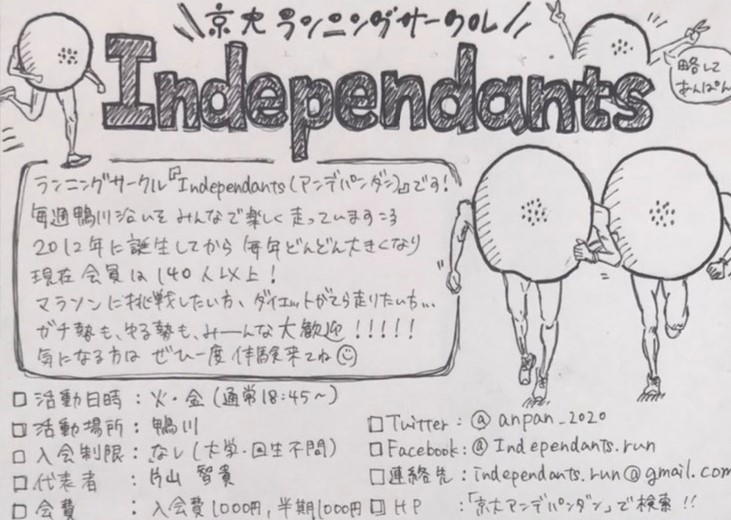 京大ランニングサークル
Independants
略して
あんぱん
ランニングサークル『Independants(アンデパンダン)』です!
毎週鴨川沿いを みんなで楽しく 走っています
2012年に誕生してから 毎年どんどん大きくなり
現在会員は140人以上!
マラソンに挑戦したい方、ダイエットがてら走りたい方...
ガチ勢も、ゆる勢も、みーんな 大歓迎 !!!!!
気になる方は ぜひ一度 体験来てね
□ 活動日時 : 火・金 (通常18:45〜)
□ 活動場所 : 鴨川
□ 入会制限 : なし (大学・回生不問)
□ 代表者 : 片山 智貴
□ 会費 : 入会費1000円, 半期1000円
□ Twitter : @ anpan_2020
□ Facebook : @ Independants.run
□ 連絡先 : independants.run@gmail.com
□ HP : 「京大アンデパンダン」で検索 !!